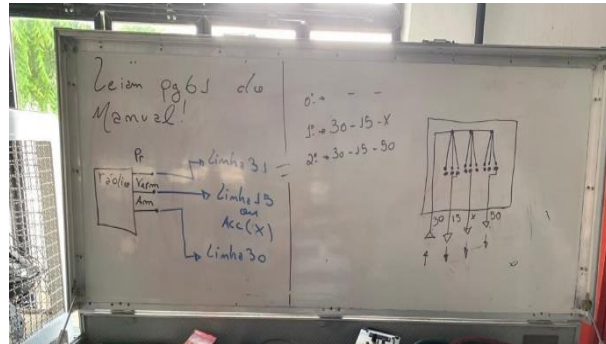 Leiam pg 61 do
Manual!
Pr
rádio
Verm
Am
Linha 31
Linha 15
ou
Acc (X)
Linha 30
0: → - -
1: → 30 - 15 - X
2: → 30 - 15 - 50
30 15 X 50